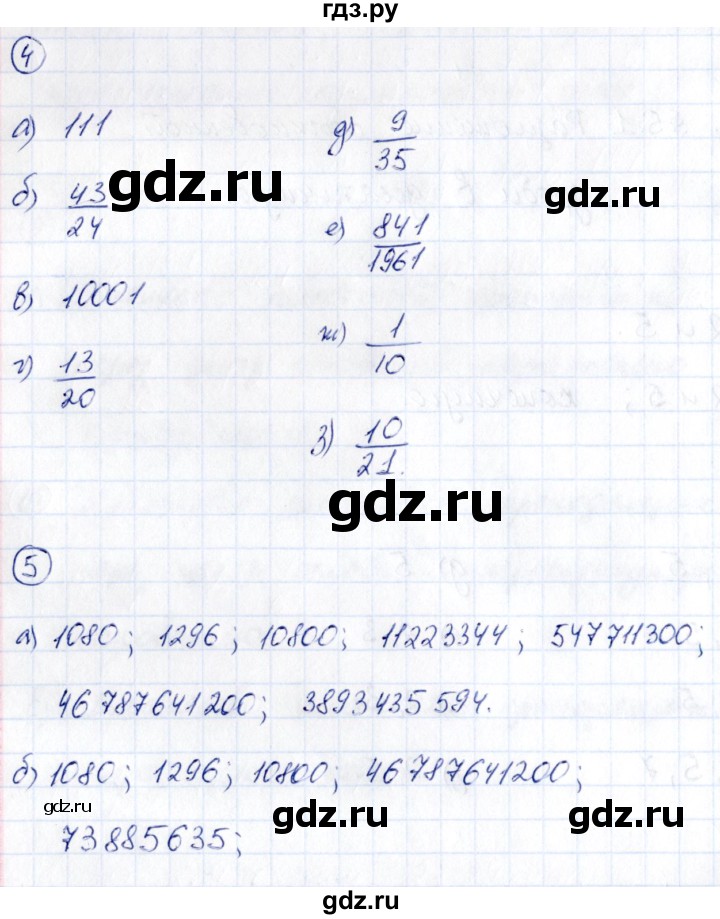 гдз.ру
4
а) 111
б) 43/24
в) 10001
г) 13/20
д) 9/35
е) 841/1961
ж) 1/10
з) 10/21.
gdz.ru
gdz.ru
gdz.ru
5
а) 1080; 1296; 10800; 11223344; 547711300;
46787641200; 3893435594.
б) 1080; 1296; 10800; 46787641200;
73885635;
gdz.ru
gdz.ru
gdz.ru
gdz.ru